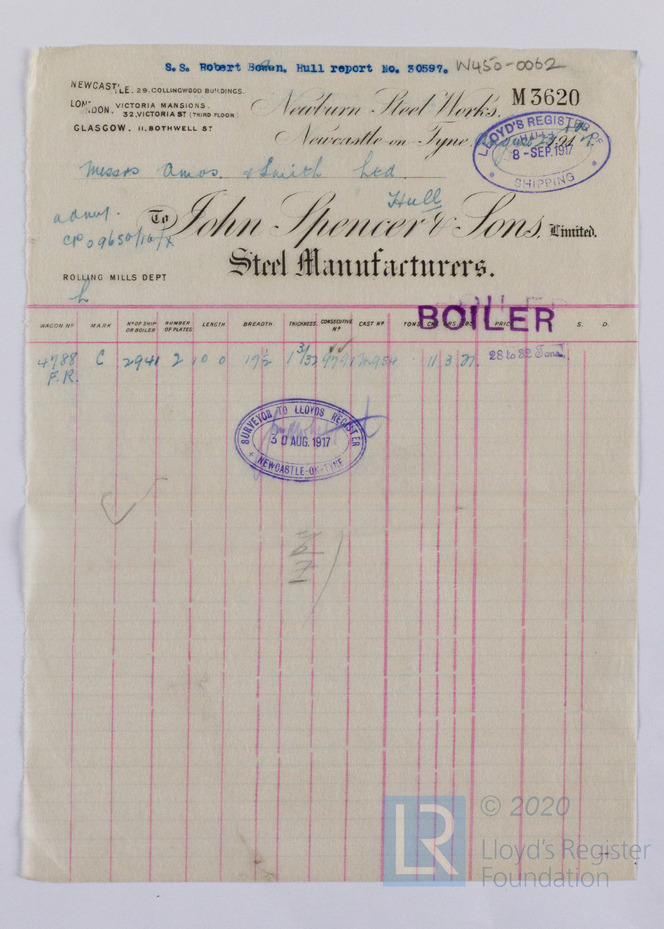 S.S. Robert Bowen. Hull report No. 30597. W450-0062
NEWCASTLE. 29. COLLINGWOOD BUILDINGS.
LONDON. VICTORIA MANSIONS.
32, VICTORIA ST (THIRD FLOOR)
GLASGOW. 11. BOTHWELL ST
Newburn Steel Works. M3620
Newcastle-on-Tyne.
LLOYD'S REGISTER OF SHIPPING
HULL
8-SEP. 1917
Messrs Amos & Smith Ltd
Hull
To John Spencer & Sons, Limited.
Steel Manufacturers.
ROLLING MILLS DEPT
BOILER
WAGON No MARK No OF SHIP OR BOILER NUMBER OF PLATES LENGTH BREADTH THICKNESS CONSECUTIVE No CAST No TONS PRICE S. D.
4788 C 2941 2 10 0 17½ 1 3/32 11 3 21 28 to 32 Tons
P.R.
SURVEYOR TO LLOYDS REGISTER
30 AUG. 1917
NEWCASTLE-ON-TYNE
© 2020
LR Lloyd's Register
Foundation